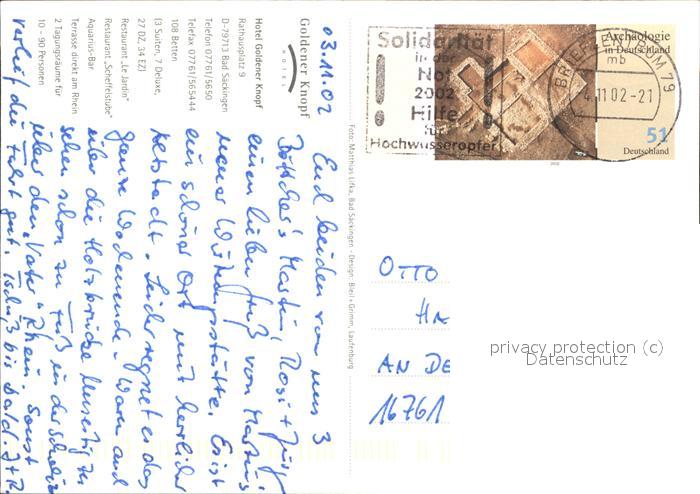 Goldener Knopf
HOTEL
Hotel Goldener Knopf
Rathausplatz 9
D-79713 Bad Säckingen
Telefon 07761/5650
Telefax 07761/565444
108 Betten
(3 Suiten, 7 Deluxe,
27 DZ, 34 EZ)
Restaurant „Le Jardin"
Restaurant „Scheffelstube"
Aquarius-Bar
Terrasse direkt am Rhein
2 Tagungsräume für
10 - 90 Personen
03.11.02
Euch beiden von uns 3
Martin, Rosi +
einen lieben Gruß von Martins
neuer Wirkungsstätte. Es ist
ein schöner Ort mit herrlicher
Leider regnet es das
ganze Wochenende. Waren auch
über die Holzbrücke
schon zu Fuß in der Schweiz
über den „Vater" Rhein. Sonst
verlief die Fahrt gut. Tschüß bis bald. J+R
Foto: Matthias Lifka, Bad Säckingen - Design: Bleil + Grimm, Laufenburg
Solidarität
in der
Not
2002
Hilfe
für
Hochwasseropfer
BRIEFZENTRUM 79
mb
4.11.02-21
Archäologie
in Deutschland
51
Deutschland
2002
OTTO
HA
AN DE
16761
privacy protection (c)
Datenschutz